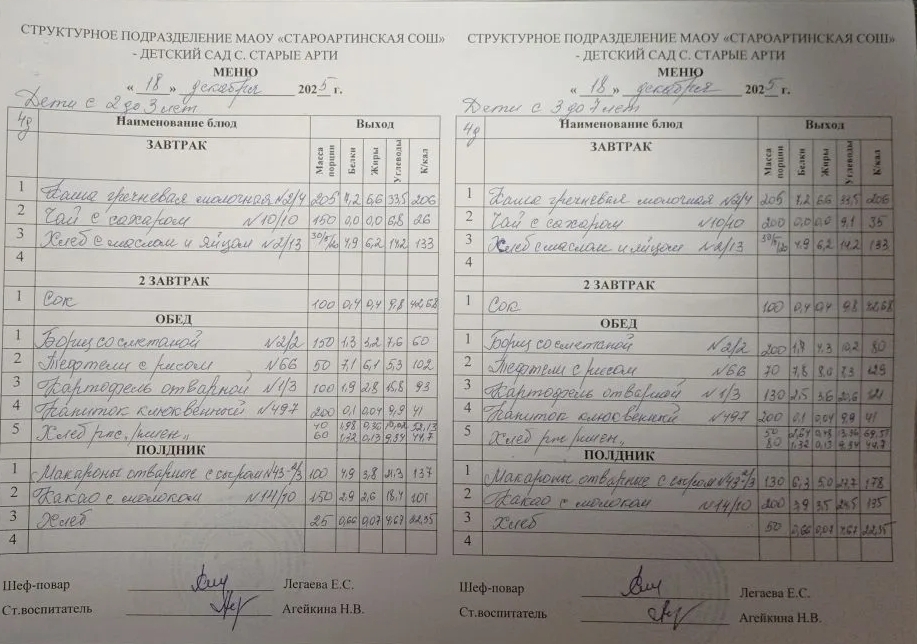 СТРУКТУРНОЕ ПОДРАЗДЕЛЕНИЕ МАОУ «СТАРОАРТИНСКАЯ СОШ»
- ДЕТСКИЙ САД С. СТАРЫЕ АРТИ
МЕНЮ
« 18 » декабря 2025 г.
Дети с 2 до 3 лет
Наименование блюд Выход
ЗАВТРАК Масса порции Белки Жиры Углеводы К/кал
1 Каша гречневая молочная №2/4 205 7,2 6,6 33,5 206
2 Чай с сахаром №10/10 150 0,0 0,0 6,8 26
3 Хлеб с маслом и яйцом №2/13 4,9 6,2 14,2 133
4
2 ЗАВТРАК
1 Сок 100 0,4 0,4 9,8 42,68
ОБЕД
1 Борщ со сметаной №2/2 150 1,3 3,2 7,6 60
2 Тефтели с рисом №66 50 7,1 6,1 5,3 102
3 Картофель отварной №1/3 100 1,9 2,8 15,8 93
4 Напиток клюквенный №497 200 0,1 0,04 9,9 41
5 Хлеб рж./пшен. 40 1,98 0,36 10,02 52,13
60 1,32 0,13 9,34 44,7
ПОЛДНИК
1 Макароны отварные с сыром №43-2/3 100 4,9 3,8 21,3 137
2 Какао с молоком №14/10 150 2,9 2,6 18,4 101
3 Хлеб 25 0,66 0,07 4,67 22,35
4
Шеф-повар Легаева Е.С.
Ст.воспитатель Агейкина Н.В.
СТРУКТУРНОЕ ПОДРАЗДЕЛЕНИЕ МАОУ «СТАРОАРТИНСКАЯ СОШ»
- ДЕТСКИЙ САД С. СТАРЫЕ АРТИ
МЕНЮ
« 18 » декабря 2025 г.
Дети с 3 до 7 лет
Наименование блюд Выход
ЗАВТРАК Масса порции Белки Жиры Углеводы К/кал
1 Каша гречневая молочная №2/4 205 7,2 6,6 33,5 206
2 Чай с сахаром №10/10 200 0,0 0,0 9,1 35
3 Хлеб с маслом и яйцом №2/13 4,9 6,2 14,2 133
4
2 ЗАВТРАК
1 Сок 100 0,4 0,4 9,8 42,68
ОБЕД
1 Борщ со сметаной №2/2 200 1,7 4,3 10,2 80
2 Тефтели с рисом №66 70 7,8 8,0 7,3 129
3 Картофель отварной №1/3 130 2,5 3,6 20,6 121
4 Напиток клюквенный №497 200 0,1 0,04 9,9 41
5 Хлеб рж./пшен. 50 2,64 0,48 13,36 69,51
80 1,32 0,13 9,34 44,7
ПОЛДНИК
1 Макароны отварные с сыром №43-2/3 130 6,3 5,0 27,7 178
2 Какао с молоком №14/10 200 3,9 3,5 24,5 135
3 Хлеб 50 0,66 0,07 4,67 22,35
4
Шеф-повар Легаева Е.С.
Ст.воспитатель Агейкина Н.В.